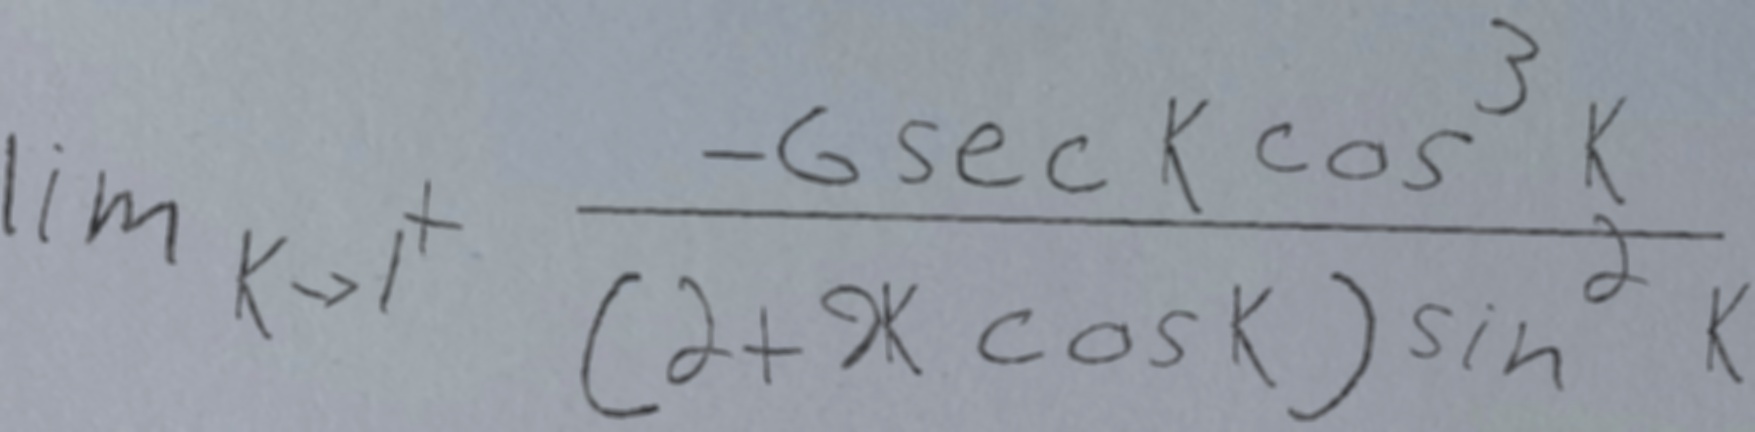 \lim_{K \to 1^+} \frac{-6 \sec K \cos^3 K}{(2 + 2K \cos K) \sin^2 K}